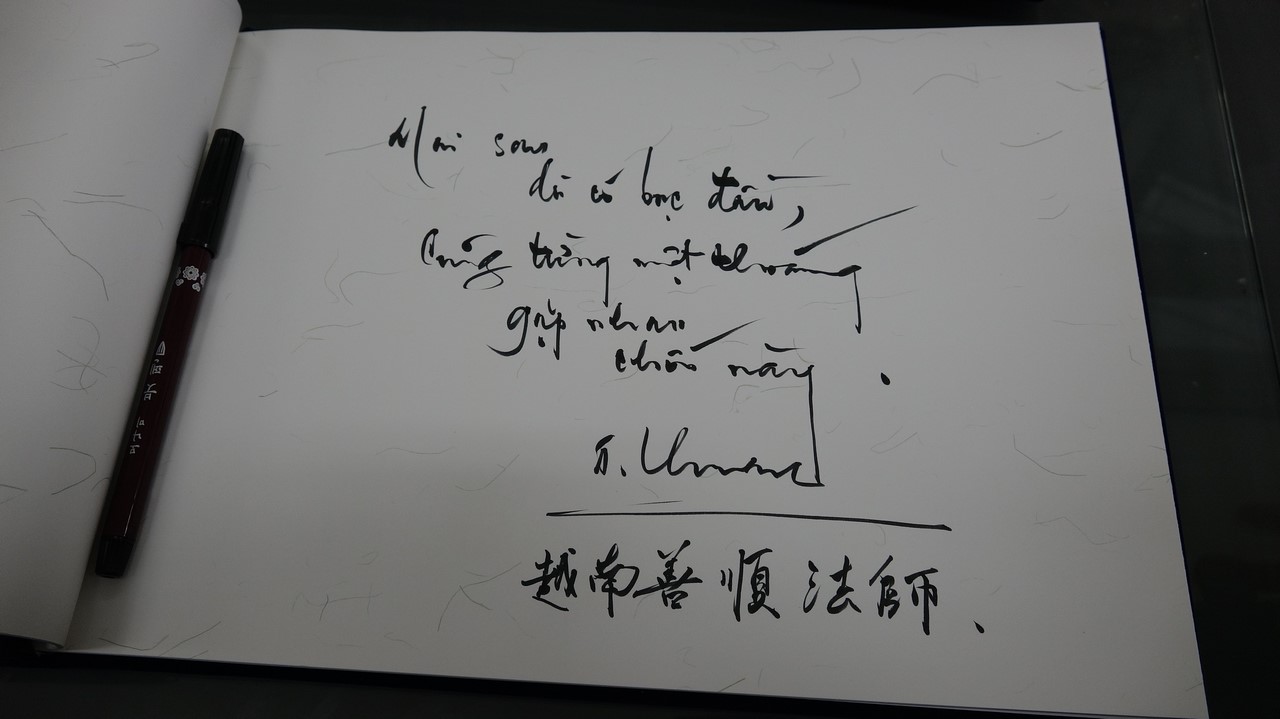 Mai sau
dù có bạc đầu,
Cũng từng một thoáng
gặp nhau
chốn này.
越南善順法師、